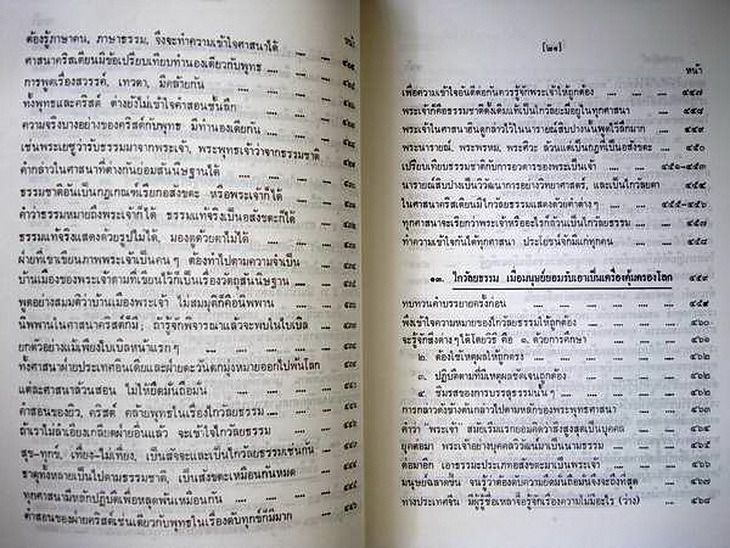 หน้า
ต้องรู้ภาษาคน, ภาษาธรรม, จึงจะทำความเข้าใจศาสนาได้ ....
ศาสนาคริสเตียนมีข้อเปรียบเทียบทำนองเดียวกับพุทธ ....
การพูดเรื่องสวรรค์, เทวดา, มีคล้ายกัน .... ....
ทั้งพุทธและคริสต์ ต่างยังไม่เข้าใจคำสอนชั้นลึก ....
ความจริงบางอย่างของคริสต์กับพุทธ มีทำนองเดียวกัน ....
เช่นพระเยซูว่ารับธรรมมาจากพระเจ้า, พระพุทธเจ้าว่าจากธรรมชาติ
คำกล่าวในศาสนาที่ต่างกันย่อมสันนิษฐานได้ ....
ธรรมชาติอันเป็นกฎเกณฑ์เรียกอสังขตะ หรือพระเจ้าก็ได้ ....
คำว่าธรรมหมายถึงพระเจ้าก็ได้ ธรรมแท้จริงเป็นอสังขตะก็ได้
ธรรมแท้จริงแสดงด้วยรูปไม่ได้, มองดูด้วยตาไม่ได้ ....
ฝ่ายที่เขียนภาพพระเจ้าเป็นคนๆ ต้องทำไปตามความจำเป็น
บ้านเมืองของพระเจ้าตามที่เขียนไว้ก็เป็นเรื่องวัตถุสันนิษฐาน
พูดอย่างสมมติว่าบ้านเมืองพระเจ้า ไม่สมมุติก็คือนิพพาน
นิพพานในศาสนาคริสต์ก็มี; ถ้ารู้จักพิจารณาแล้วจะพบในไบเบิล
ยกตัวอย่างแม้เพียงไบเบิลหน้าแรกๆ .... ....
ทั้งศาสนาฝ่ายประเทศอินเดียและฝ่ายตะวันตกมุ่งหมายออกไปพ้นโลก
แต่ละศาสนาล้วนสอน ไม่ให้ยึดมั่นถือมั่น ....
คำสอนของยิว, คริสต์ คล้ายพุทธในเรื่องไกวัลยธรรม ....
ถ้าเราไม่ลำเอียงเกลียดฝ่ายอื่นแล้ว จะเข้าใจไกวัลยธรรม
สุข-ทุกข์, เที่ยง-ไม่เที่ยง, เป็นสัจจะและเป็นไกวัลยธรรมเช่นกัน
ธาตุทั้งหลายเป็นไปตามธรรมชาติ, เป็นสังขตะเหมือนกันหมด
ทุกศาสนามีหลักปฏิบัติเพื่อหลุดพ้นเหมือนกัน ....
คำสอนของฝ่ายคริสต์เช่นเดียวกับพุทธในเรื่องดับทุกข์ก็มีมาก
[๒๑]
หน้า
เพื่อความเข้าใจอันดีต่อกันควรรู้จักพระเจ้าให้ถูกต้อง .... .... ๔๔๗
พระเจ้าก็คือธรรมชาติดั้งเดิมแต่เป็นไกวัลยะมีอยู่ในทุกศาสนา .... ๔๔๘
พระเจ้าในศาสนาฮินดูกล่าวไว้ในนารายณ์สิบปางนั้นพูดไว้ลึกมาก .... ๔๔๙
พระนารายณ์, พระพรหม, พระศิวะ ล้วนแต่เป็นกฎที่เป็นอสังขตะ .... ๔๕๐
เปรียบเทียบธรรมชาติกับการอวตารของพระเป็นเจ้า .... ๔๕๑-๔๕๓
นารายณ์สิบปางเป็นวิวัฒนาการอย่างวิทยาศาสตร์, และเป็นไกวัลยตา
ในศาสนาคริสเตียนมีไกวัลยธรรมแสดงด้วยคำต่างๆ .... ๔๕๕-๔๕๖
ทุกศาสนาจะเรียกว่าพระเจ้าหรืออะไรก็ล้วนเป็นไกวัลยธรรม .... ๔๕๗
ทำความเข้าใจกันได้ทุกศาสนา ประโยชน์ก็มีแก่ทุกคน .... .... ๔๕๘
๑๓. ไกวัลยธรรม เมื่อมนุษย์ยอมรับเอาเป็นเครื่องคุ้มครองโลก ๔๕๙
ทบทวนคำบรรยายครั้งก่อน .... .... .... .... ๔๕๙
พึงเข้าใจความหมายของไกวัลยธรรมให้ถูกต้อง .... .... .... ๔๖๐
จะรู้จักสิ่งต่างๆ ได้โดยวิธี คือ ๑. ด้วยการศึกษา .... .... ๔๖๑
๒. ต้องใช้เหตุผลให้ถูกตรง .... .... .... ๔๖๒
๓. ปฏิบัติตามที่มีเหตุผลชัดเจนถูกต้อง .... .... ๔๖๒
๔. ชิมรสของการบรรลุธรรมนั้นๆ .... .... .... ๔๖๒
การกล่าวดังข้างต้นกล่าวไปตามหลักของพระพุทธศาสนา .... ๔๖๓
คำว่า "พระเจ้า" สมัยเริ่มแรกยอมคิดว่าสิ่งสูงสุดเป็นบุคคล
ยุคต่อมา พระเจ้าอย่างบุคคลวิวัฒน์มาเป็นนามธรรม .... ๔๖๕
ต่อมาอีก เอาธรรมะประเภทอสังขตะมาเป็นพระเจ้า .... .... ๔๖๖
มนุษย์ฉลาดขึ้น จนรู้ว่าต้องดับความยึดมั่นถือมั่นจึงจะถึงที่สุด
ทางประเทศจีน มีผู้รู้ชื่อเหลาจื้อรู้จักเรื่องความไม่มีอะไร (ว่าง) .... ๔๖๘